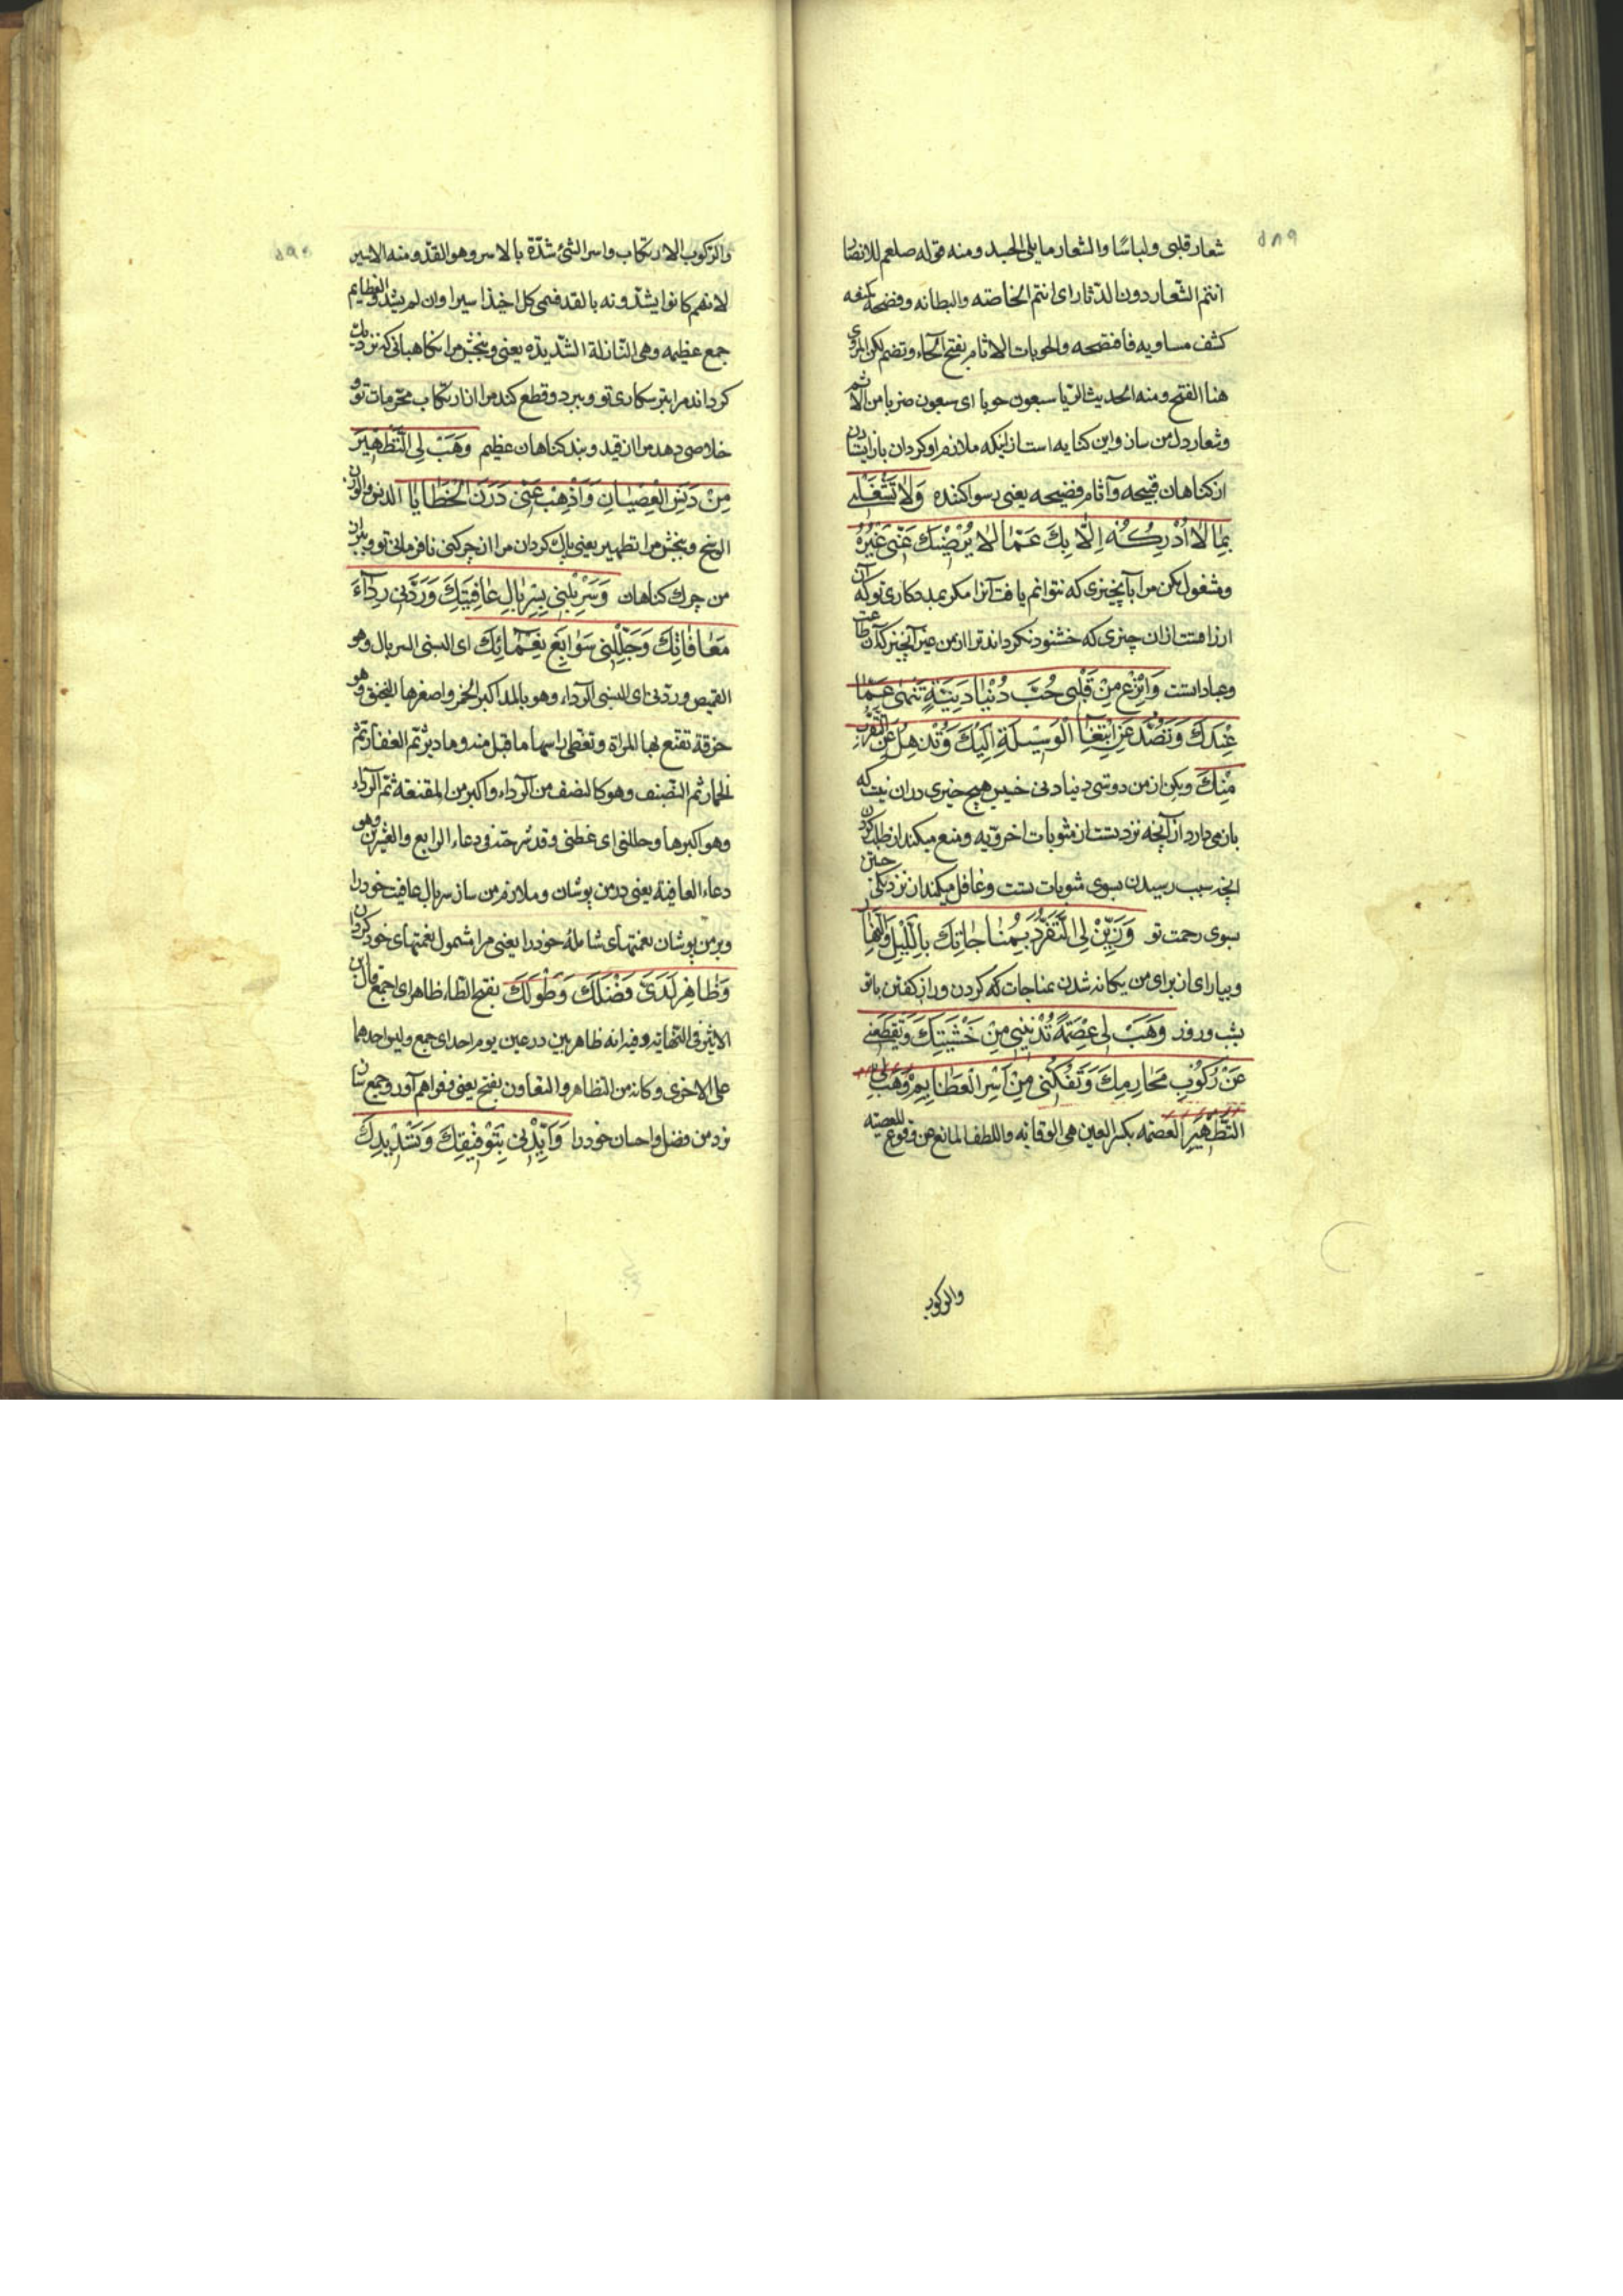 ٥٨٩
شعار قلبی ولباسًا والشعار ما یلی الجسد ومنه قوله صلعم للانصار
انتم الشعار دون الدثار ای انتم الخاصته والبطانه وفضحه کمنعه
کشف مساویه فافتضحه والحوبات الاثام بفتح الحاء وتضم لکن المروی
هنا الفتح ومنه الحدیث الربا سبعون حوبا ای سبعون ضربا من الاثم
وشعار دل من ساز واین کنایه است از اینکه ملازم او کردان باز ایستادن
از کناهان قبیحه وآثام فضیحه یعنی رسوا کننده وَلَا تَشْغَلْنِی
بِمَا لَا أُدْرِکُهُ إِلَّا بِكَ عَمَّا لَا یُرْضِیْكَ عَنِّی غَیْرُهُ
ومشغول مکن مرا بآنچیزی که نتوانم یافت آنرا مکر بمددکاری تو که آن
ارزاقست از آن چیزی که خشنود نکرداند ترا از من غیر آنچیز که آن طاعت
وعبادتست وَانْزِعْ مِنْ قَلْبِی حُبَّ دُنْیَا دَنِیَّةٍ تَنْهَی عَمَّا
عِنْدَكَ وَتَصُدُّ عَنِ ابْتِغَاءِ الْوَسِیْلَةِ اِلَیْكَ وَتُذْهِلُ عَنِ التَّقَرُّبِ
مِنْكَ وبکن از من دوستی دنیا دنی خسیس هیچ خیری در آن نیست که
باز می دارد از آنچه نزد تست از مثوبات اخرویه ومنع میکند از طلب کردن
آنچه سبب رسیدن بسوی مثوبات تست وغافل میکند از نزدیکی جستن
بسوی رحمت تو وَزَیِّنْ لِیَ التَّفَرُّدَ بِمُنَاجَاتِكَ بِاللَّیْلِ وَالنَّهَارِ
وبیارای از برای من یکانه شدن بمناجات که کردن وراز کفتن با تو
بشب وروز وَهَبْ لِی عِصْمَةً تُدْنِیْنِی مِنْ خَشْیَتِكَ وَتَقْطَعُنِی
عَنْ رُکُوْبِ مَحَارِمِكَ وَتَفُکُّنِی مِنْ اَسْرِ الْعَظَائِمِ وَهَبْ لِیَ
التَّطْهِیْرَ العصمه بکسر العین هی الوقایه واللطف المانع عن وقوع المعصیه
والرکوب
٥٩٠
والرکوب الارتکاب واسر الشئ شدّة بالاسر وهو القدّ ومنه الاسیر
لانهم کانوا یشدّونه بالقد فسمی کل اخیذ اسیرا وان لم یشد والعظایم
جمع عظیمه وهی النازلة الشدیده یعنی وببخش مرا نکاهبانی که نزدیك
کرداند مرا بترسکاری تو وببرد وقطع کند مرا از ارتکاب محرمات تو و
خلاصی دهد مرا از قید وبند کناهان عظیم وَهَبْ لِی التَّطْهِیْرَ
مِنْ دَنَسِ الْعِصْیَانِ وَاَذْهِبْ عَنِّی دَرَنَ الْخَطَایَا الدنس والدرن
الوسخ وببخش مرا تطهیر یعنی پاك کردان مرا از چرکنی نافرمانی تو وببر از
من چرك کناهان وَسَرْبِلْنِی بِسِرْبَالِ عَافِیَتِكَ وَرَدِّنِی رِدَآءَ
مُعَافَاتِكَ وَجَلِّلْنِی سَوَابِغَ نَعْمَائِكَ ای البسنی السربال وهو
القمیص وردّنی ای البسنی الرداء وهو بالمد اکبر الخمر واصغرها البخنق وهو
خرقة تقنع بها المراة وتغطی راسها ما قبل منه وما دبر ثم الغفارة ثم
الخمار ثم النصیف وهو کالنصف من الرداء واکبر من المقنعة ثم الرداء
وهو اکبرها وجللنی ای غطنی وقد شرحته فی دعاء الرابع والعشرین وهو
دعاء العافیة یعنی در من پوشان وملازم من ساز سربال عافیت خود را
وبر من پوشان نعمتهای شامله خود را یعنی مرا مشمول نعمتهای خود کردان
وَظَاهِرْ لَدَیَّ فَضْلَكَ وَطَوْلَكَ بفتح الظاء ظاهر ای اجمع قال ابن
الاثیر فی النهایه وفیه انه ظاهر بین درعین یوم احد ای جمع ولبس احدهما
علی الاخری وکانه من التظاهر والتعاون بفتح یعنی فراهم آور وجمع ساز
نزد من فضل واحسان خود را وَاَیِّدْنِی بِتَوْفِیْقِكَ وَتَسْدِیْدِكَ